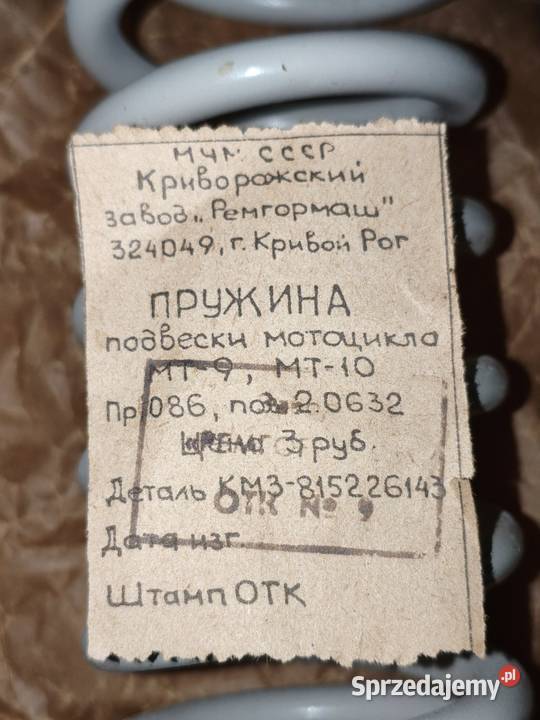 МЧМ СССР
Криворожский
завод „Ремгормаш"
324049, г. Кривой Рог
ПРУЖИНА
подвески мотоцикла
МТ-9, МТ-10
Пр 086, поз. 2.0632
Цена 3 руб.
Деталь КМЗ-815226143
ОТК № 9
Дата изг
Штамп ОТК
Sprzedajemy.pl